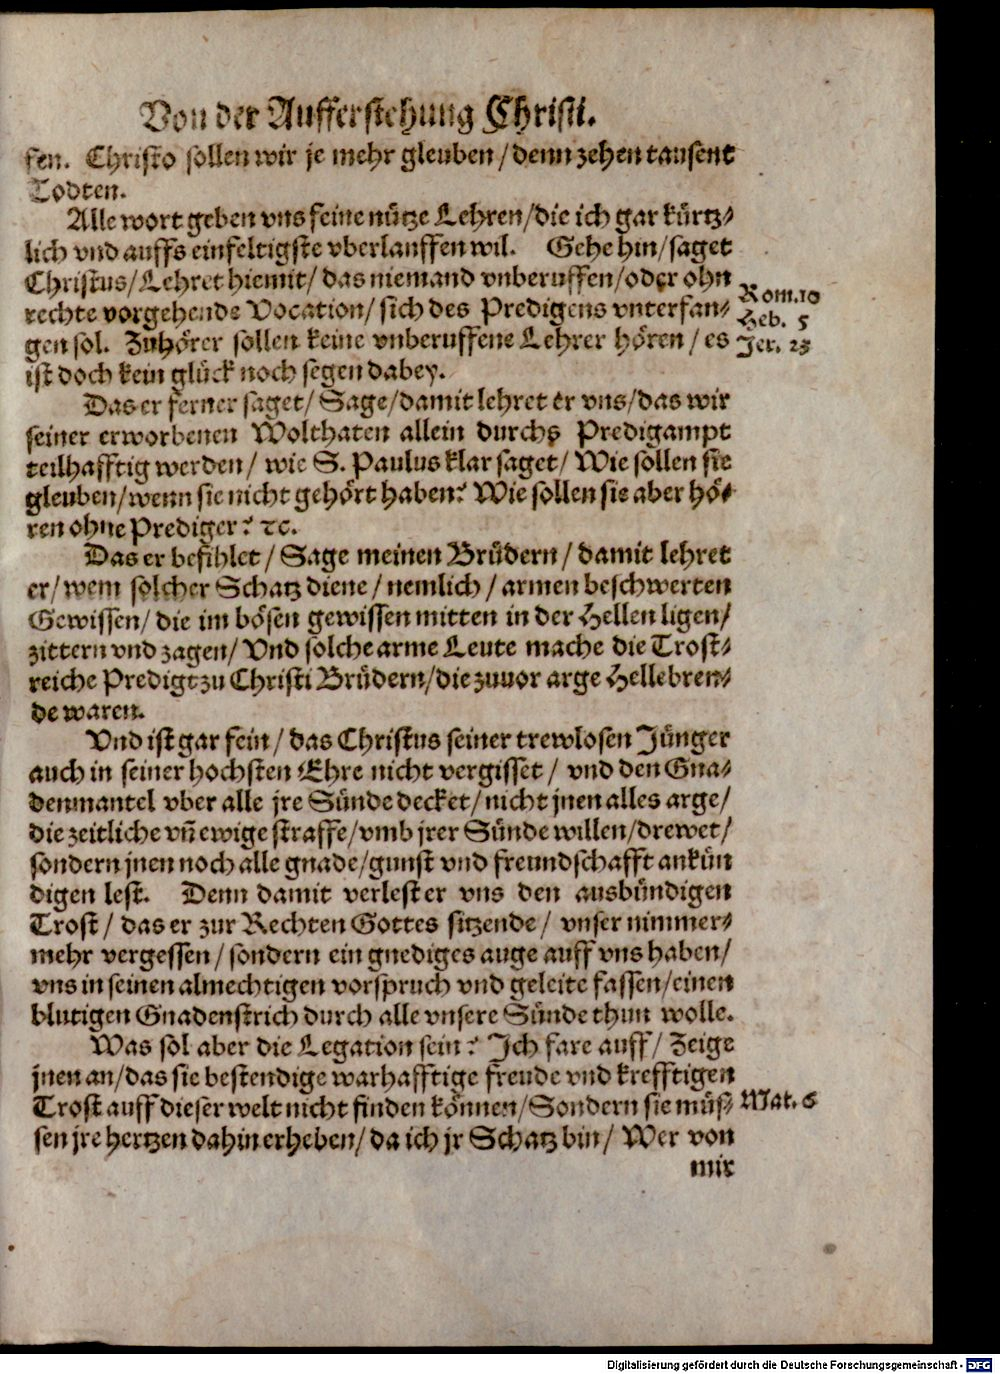 Von der Aufferstehung Christi.
sen. Christo sollen wir je mehr gleuben/denn zehen tausent
Todten.
Alle wort geben vns feine nütze Lehren/die ich gar kürtz-
lich vnd auffs einfeltigste vberlauffen wil. Gehe hin/saget
Christus/Lehret hiemit/das niemand vnberuffen/oder ohn
rechte vorgehende Vocation/sich des Predigens vnterfan-
gen sol. Zuhörer sollen keine vnberuffene Lehrer hören/es
ist doch kein glück noch segen dabey.
Rom.10
Heb. 5
Jer. 23
Das er ferner saget/Sage/damit lehret er vns/das wir
seiner erworbenen Wolthaten allein durchs Predigampt
teilhafftig werden/wie S. Paulus klar saget/Wie sollen sie
gleuben/wenn sie nicht gehört haben? Wie sollen sie aber hö-
ren ohne Prediger? ꝛc.
Das er befihlet/Sage meinen Brüdern/damit lehret
er/wem solcher Schatz diene/nemlich/armen beschwerten
Gewissen/die im bösen gewissen mitten in der Hellen ligen/
zittern vnd zagen/Vnd solche arme Leute mache die Trost-
reiche Predigt zu Christi Brüdern/die zuuor arge Hellebren-
de waren.
Vnd ist gar fein/das Christus seiner trewlosen Jünger
auch in seiner hochsten Ehre nicht vergisset/vnd den Gna-
denmantel vber alle jre Sünde decket/nicht jnen alles arge/
die zeitliche vn̄ ewige straffe/vmb jrer Sünde willen/drewet/
sondern jnen noch alle gnade/gunst vnd freundschafft ankün
digen lest. Denn damit verlest er vns den ausbündigen
Trost/das er zur Rechten Gottes sitzende/vnser nimmer-
mehr vergessen/sondern ein gnediges auge auff vns haben/
vns in seinen almechtigen vorspruch vnd geleite fassen/einen
blutigen Gnadenstrich durch alle vnsere Sünde thun wolle.
Was sol aber die Legation sein? Ich fare auff/Zeige
jnen an/das sie bestendige warhafftige freude vnd krefftigen
Trost auff dieser welt nicht finden können/Sondern sie müs-
sen jre hertzen dahin erheben/da ich jr Schatz bin/Wer von
Mat. 6
mir
Digitalisierung gefördert durch die Deutsche Forschungsgemeinschaft - DFG